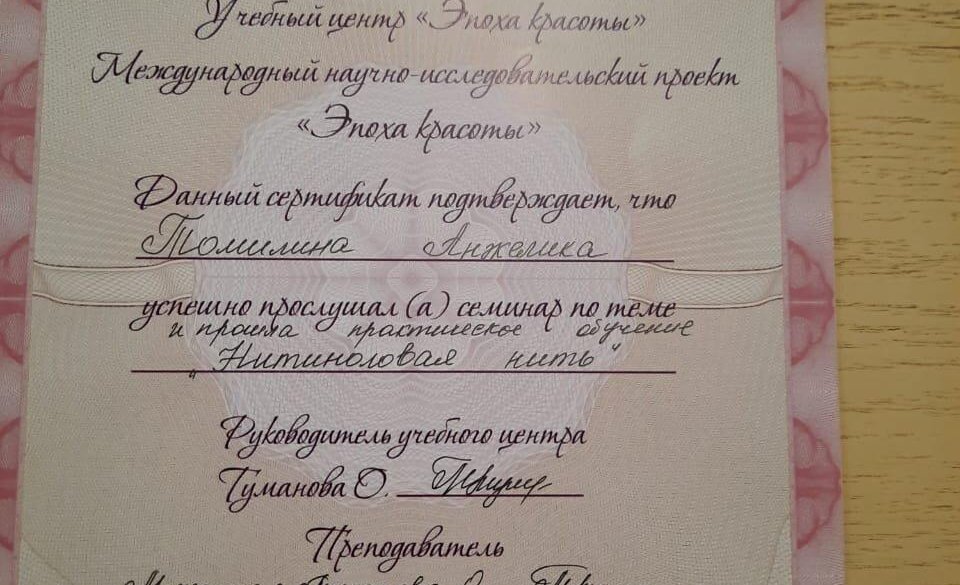 Учебный центр «Эпоха красоты»
Международный научно-исследовательский проект
«Эпоха красоты»
Данный сертификат подтверждает, что
Томилина Анжелика
успешно прослушал (а) семинар по теме
и прошла практическое обучение
"Нитиноловая нить"
Руководитель учебного центра
Туманова О.
Преподаватель